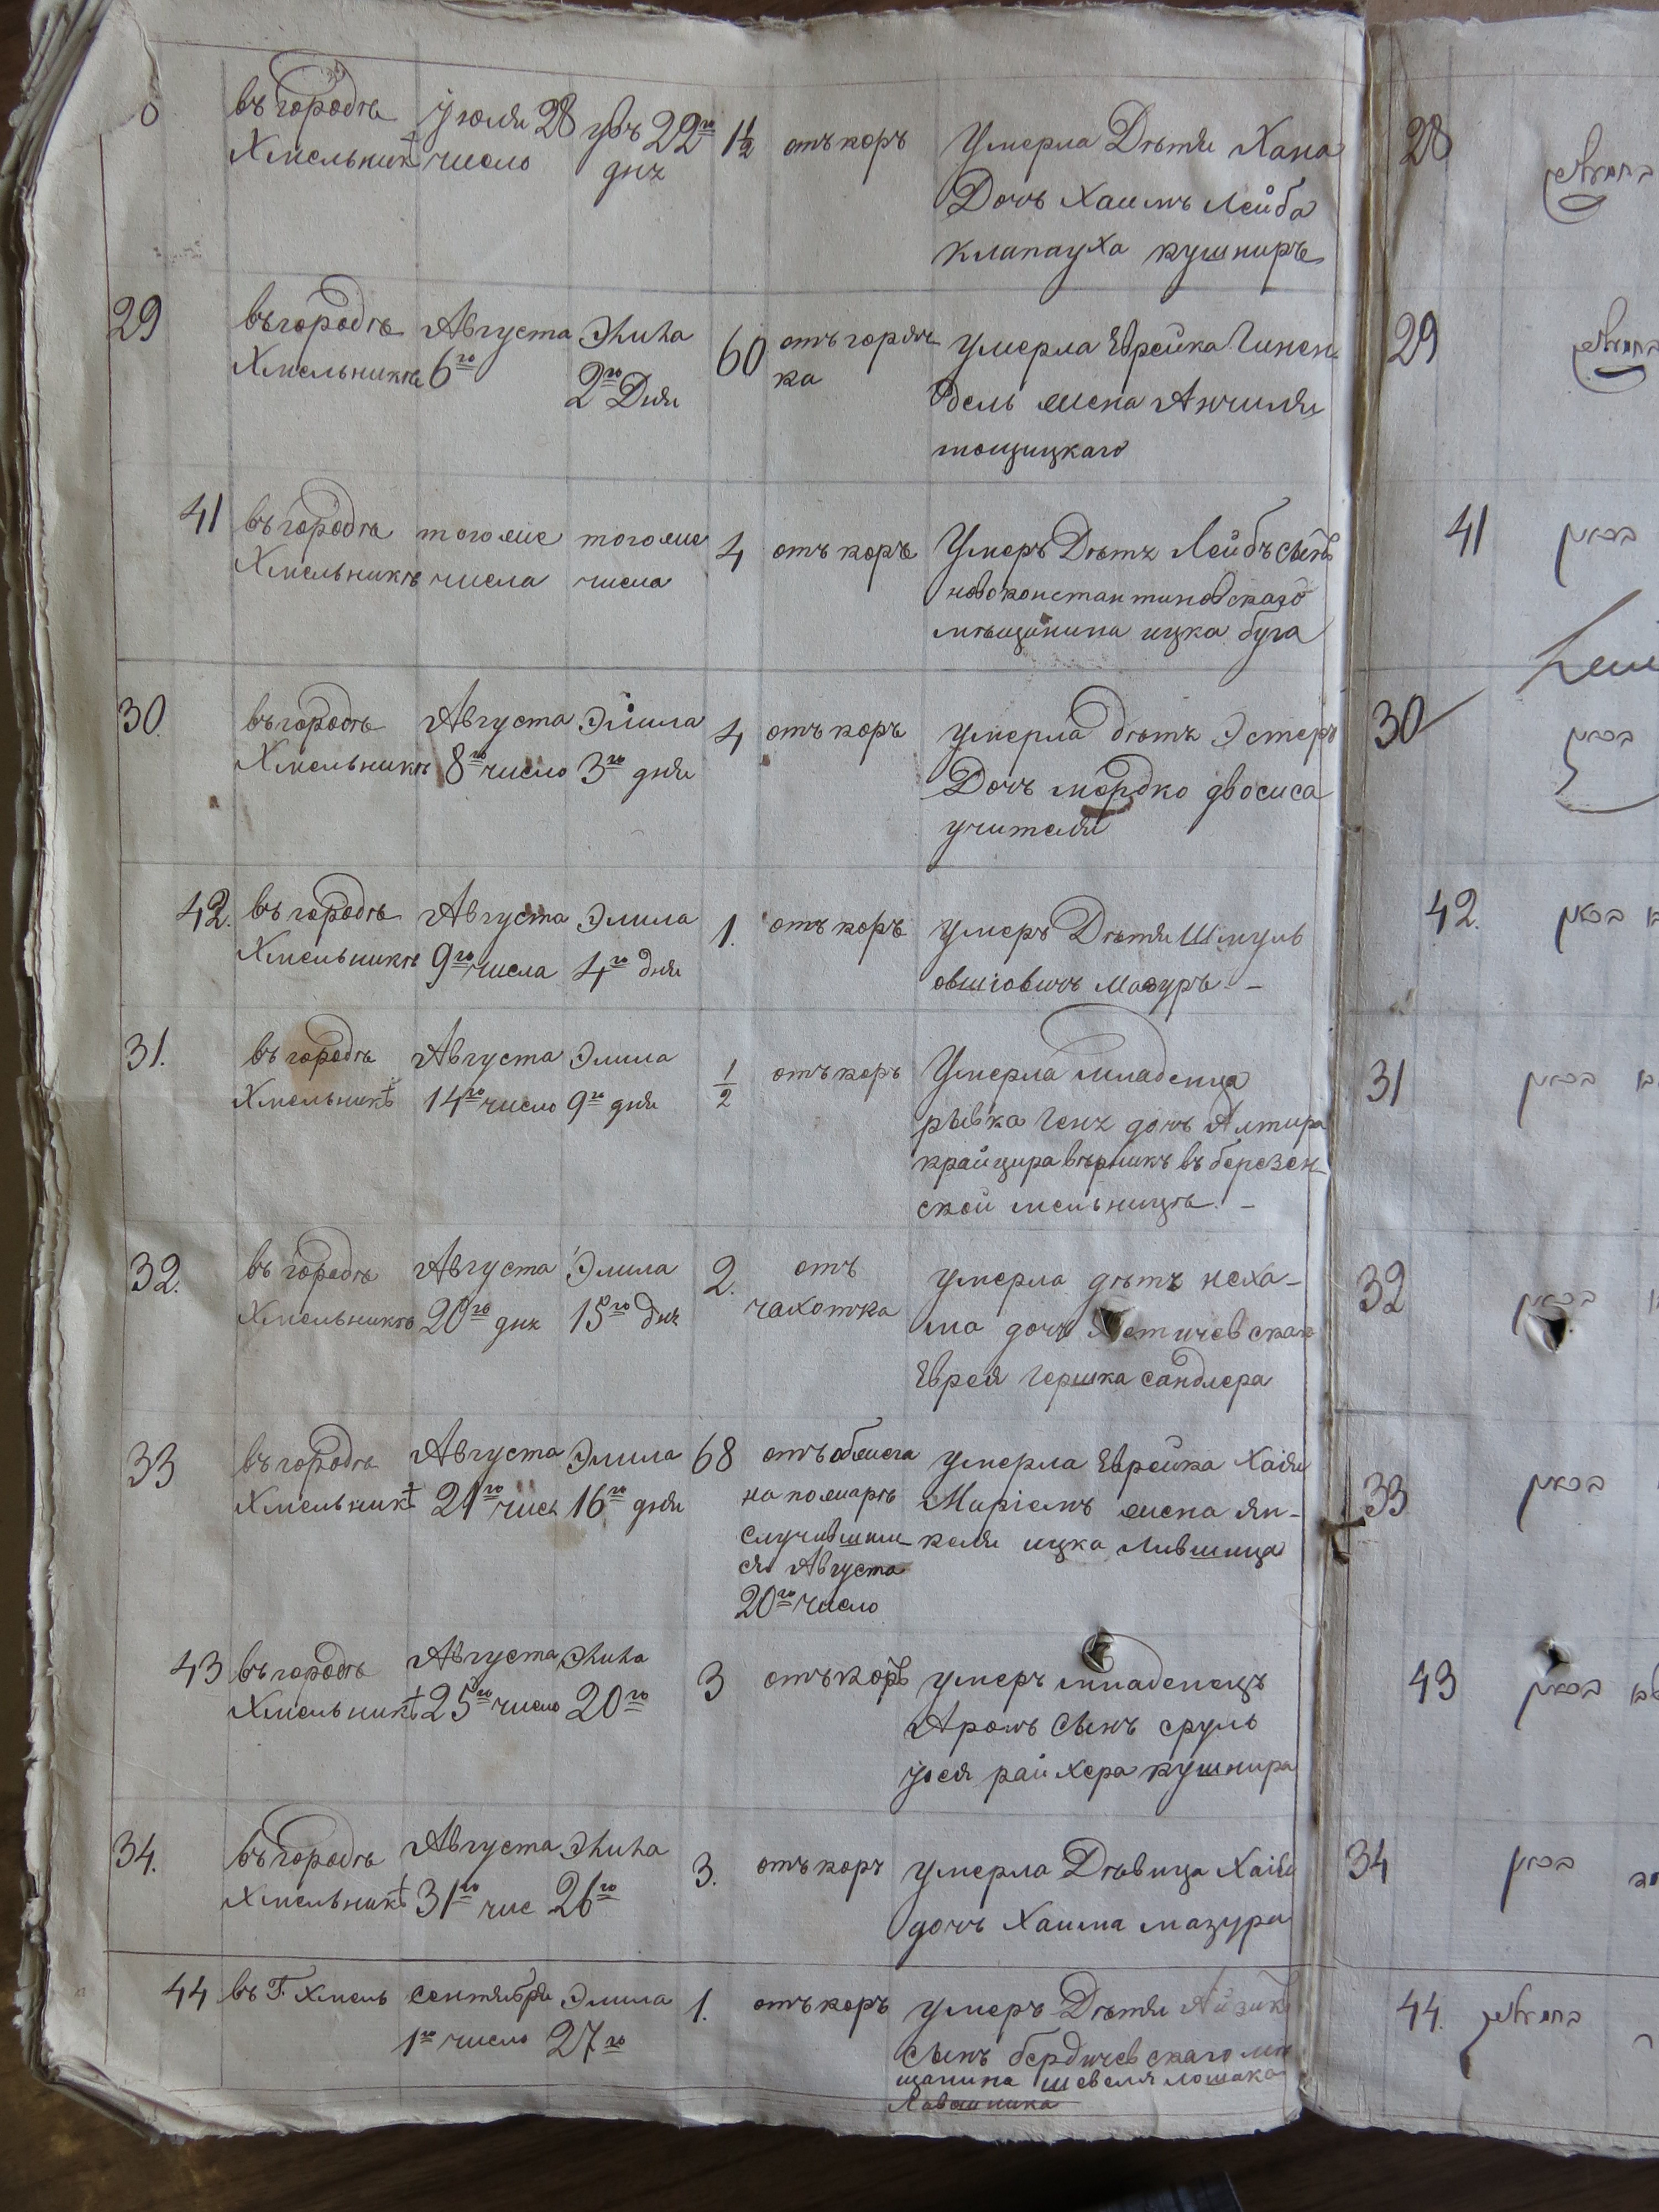 въ городѣ Іюля 28 Увъ 22го 1½ отъ коръ Умерла Дѣтя Хана 28
Хмельникѣ число дня Дочь Хаимъ Лейба
Клапауха кушниръ
29 въ городѣ Августа Элила 60 отъ горяч- Умерла Еврейка Гинен- 29
Хмельникѣ 6го 2го Дня ка дель жена Анчиля
тощицкаго
41 въ городѣ того же того же 4 отъ коръ Умеръ Дѣтя Лейбъ сынъ 41 בכאק
Хмельникѣ числа числа новоконстантиновскаго
мѣщанина ицка буга
30 въ городѣ Августа Элила 4 отъ коръ умерла дѣтя Эстеръ 30
Хмельникѣ 8го число 3го дня Дочь мордко двосиса
учителя
42. въ городѣ Августа Элила 1. отъ коръ умеръ Дѣтя Шмуль 42. בכאק
Хмельникѣ 9го числа 4го дня овшіовичъ Мазуръ –
31. въ городѣ Августа Элила ½ отъ коръ Умерла младенца 31 בכאק
Хмельникѣ 14го число 9го дня рывка Геня дочь Алтира
крайцира вѣрникъ въ березен-
ской мельницѣ. –
32. въ городѣ Августа Элила 2. отъ умерла дѣтя неха- 32
Хмельникѣ 20го дня 15го дня чахотка ма дочь
Еврея Гершка сандлера
33 въ городѣ Августа Элила 68 отъ обжога умерла Еврейка Хаія 33 בכאק
Хмельникѣ 21го числ 16го дня на пожарѣ Маріемъ жена ян-
случившим- келя ицка Лившица
ся Августа
20го число
43 въ городѣ Августа Элила 3 отъ коръ умеръ младенецъ 43 בכאק
Хмельникѣ 25го число 20го Аронъ сынъ сруль
райхера кушнира
34. въ городѣ Августа Элила 3. отъ коръ умерла Дѣвица Хаія 34 בכאק
Хмельникѣ 31го чис 26го дочь Хаима мазура
44 въ Г. Хмель сентября Элила 1. отъ коръ умеръ Дѣтя Айзик 44.
1го число 27го сынъ бердичевскаго мѣ
щанина шевеля лошака